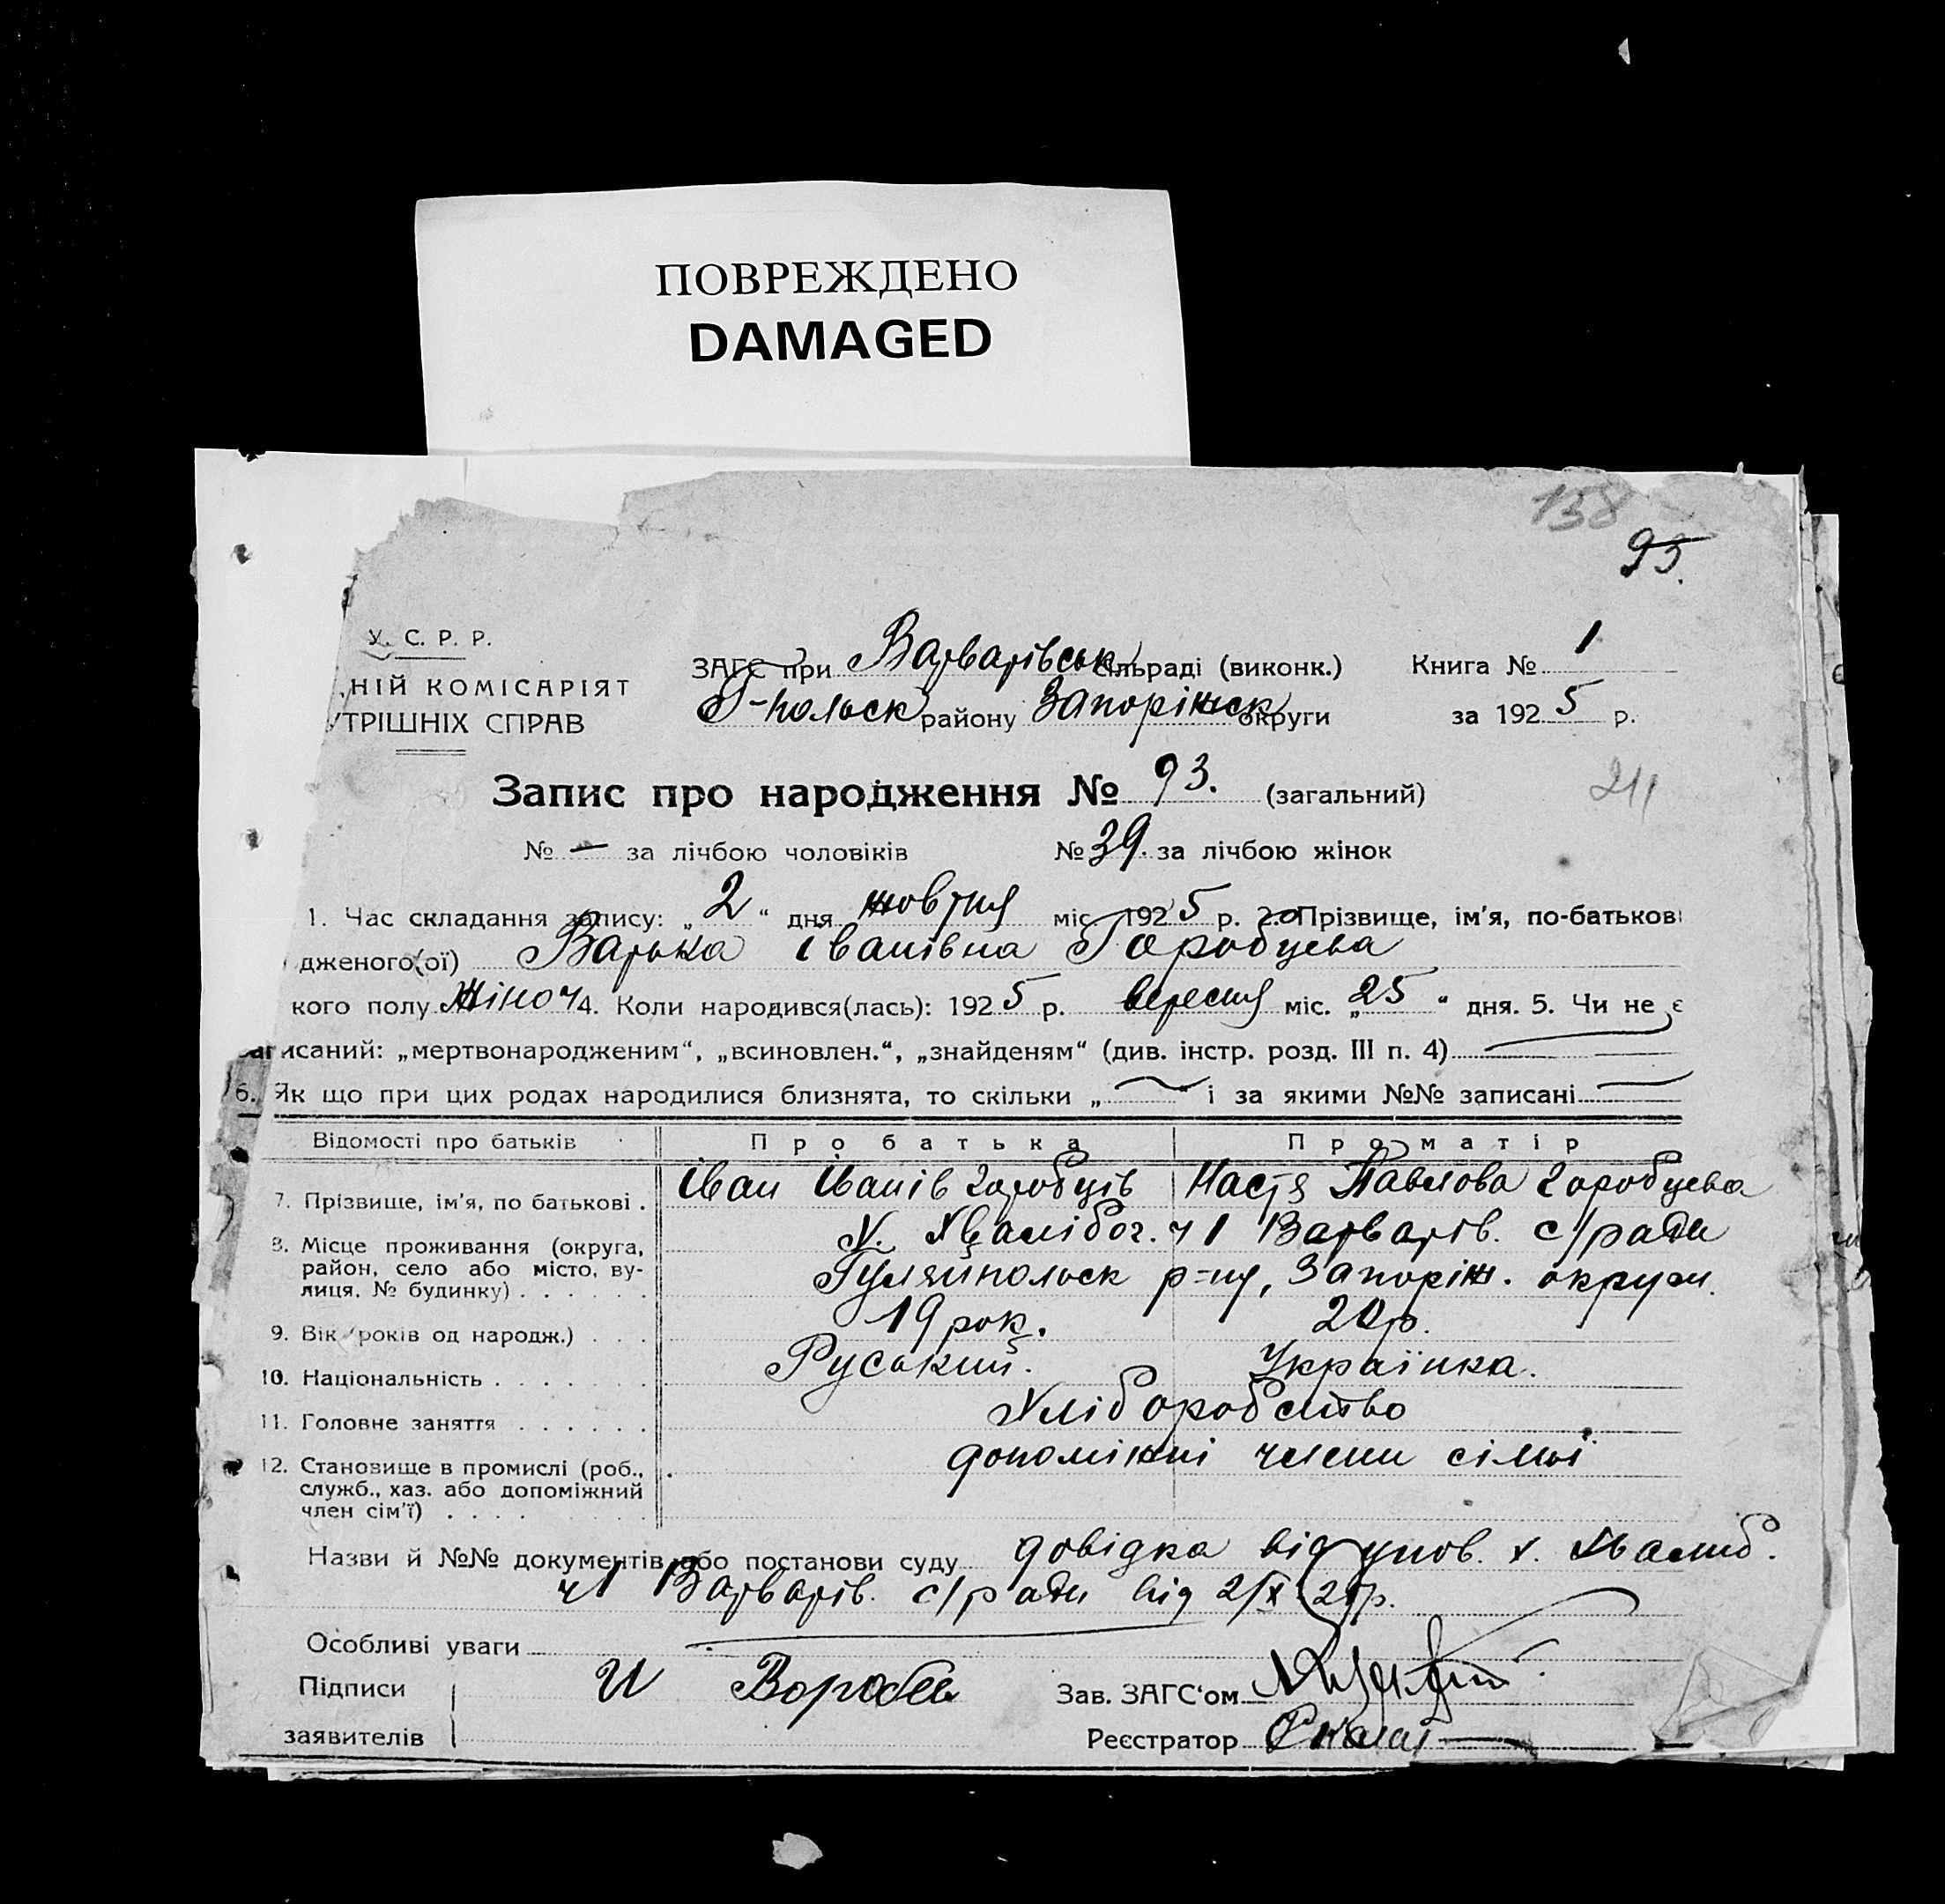 ПОВРЕЖДЕНО
DAMAGED
158
93.
У. С. Р. Р.
НІЙ КОМІСАРІЯТ
УТРІШНІХ СПРАВ
ЗАГС при Варварівськ сільраді (виконк.) Книга № 1
Г-польск району Запоріжск округи за 1925 р.
Запис про народження № 93. (загальний)
211
№ — за лічбою чоловіків № 39. за лічбою жінок
1. Час складання запису: „2“ дня жовтня міс. 1925 р. 2. Прізвище, ім’я, по-батькові
дженого(ої) Варька Іванівна Горобцева
кого полу Жіноч 4. Коли народився(лась): 1925 р. вересня міс. „25“ дня. 5. Чи не є
записаний: „мертвонародженим“, „всиновлен.“, „знайденям“ (див. інстр. розд. III п. 4)
6. Як що при цих родах народилися близнята, то скільки „—“ і за якими №№ записані —
Відомості про батьків Про батька Про матір
7. Прізвище, ім’я, по батькові . Іван Іванів Горобців Настя Павлова Горобцева
8. Місце проживання (округа, район, село або місто, вулиця, № будинку) . . . . . .
х. Хвалібог. ч 1 Варварів. с/ради
Гуляйпольск р-ну, Запоріж. округи.
9. Вік (років од народж.) . . . 19 рок. 20 р.
10. Національність . . . . . . . Руський. Українка.
11. Головне заняття . . . . . . Хліборобство
12. Становище в промислі (роб., служб., хаз. або допоміжний член сім’ї) . . . .
допоміжні члени сімьї
Назви й №№ документів або постанови суду довідка від упов. х. Хвалиб.
ч 1 Варварів. с/ради від 2/X 25 р.
Особливі уваги
Підписи И Воробев Зав. ЗАГС‘ом
заявителів Реєстратор